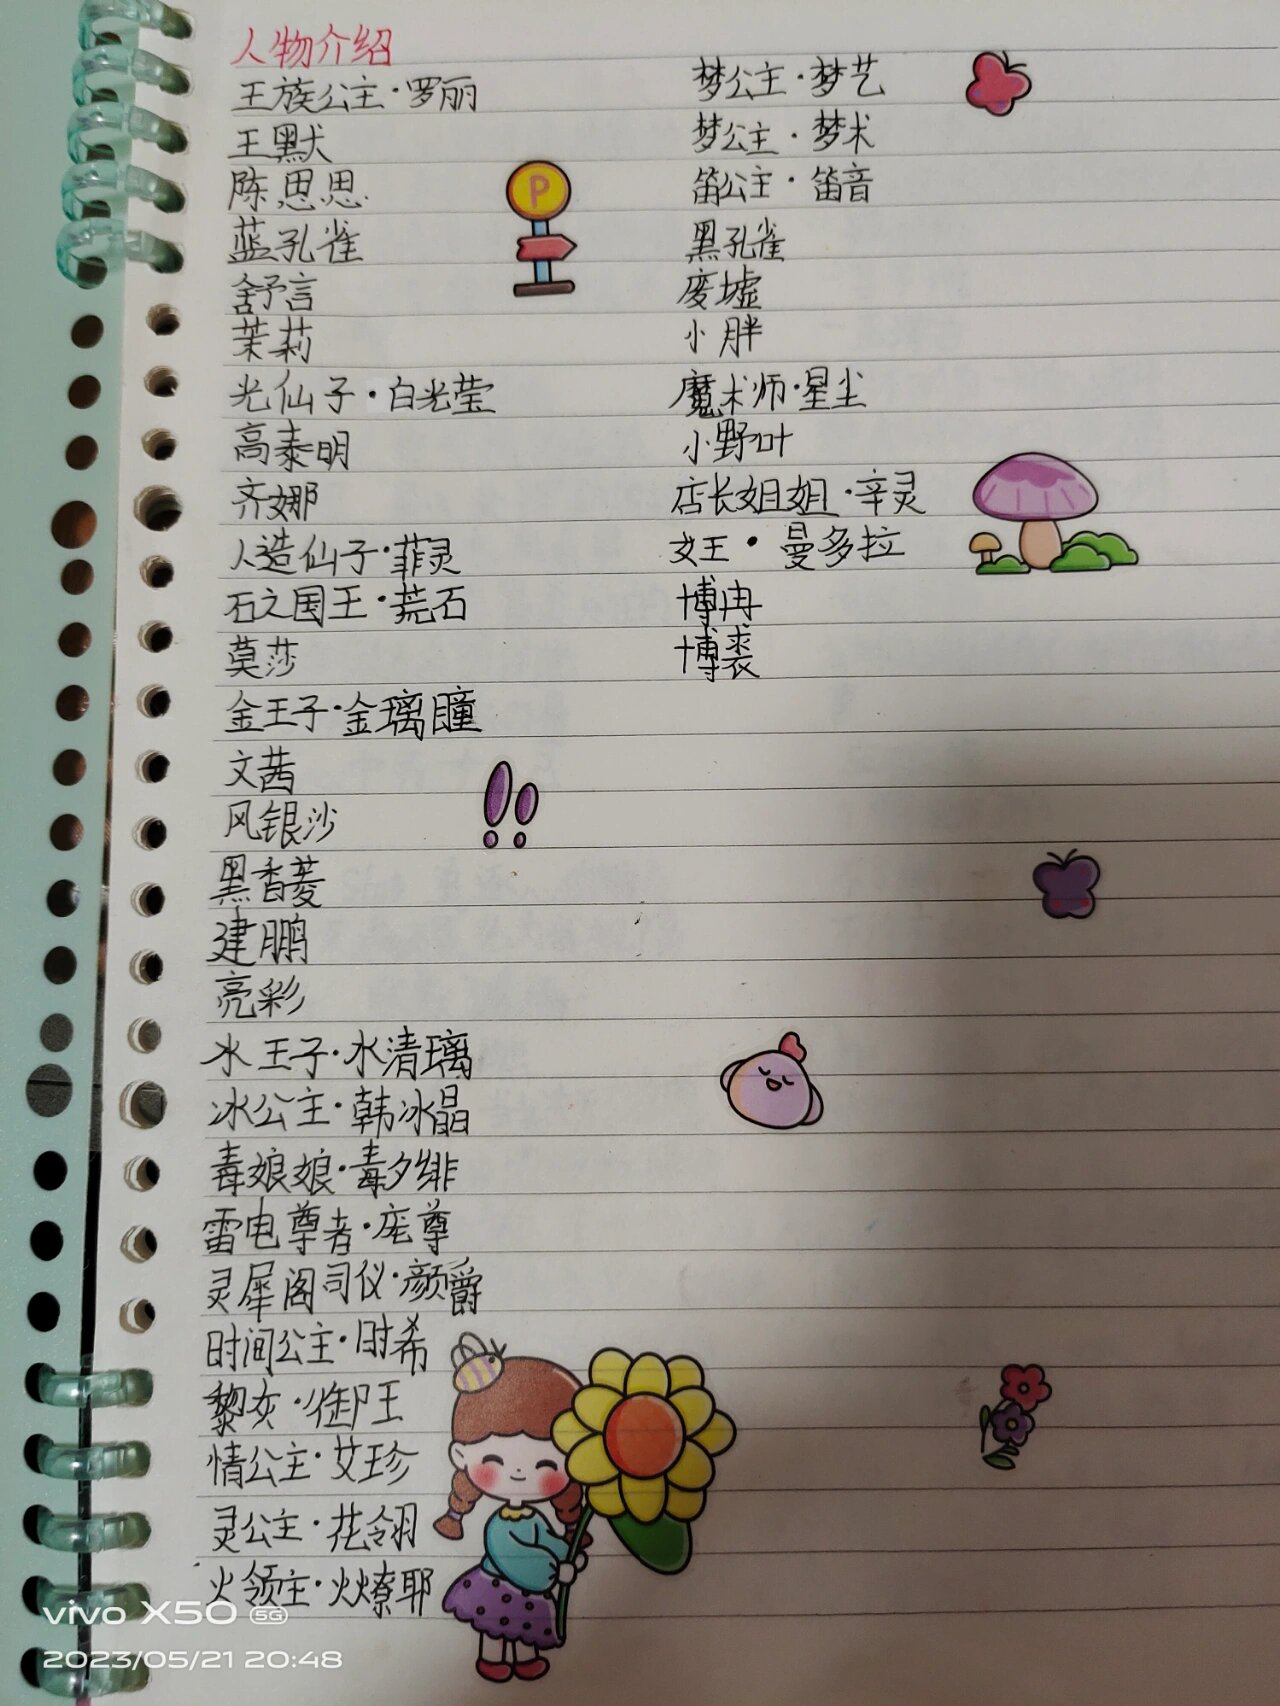 人物介绍
王族公主·罗丽
王默
陈思思
蓝孔雀
舒言
茉莉
光仙子·白光莹
高泰明
齐娜
人造仙子·菲灵
石之国王·荒石
莫莎
金王子·金璃瞳
文茜
风银沙
黑香菱
建鹏
亮彩
水王子·水清璃
冰公主·韩冰晶
毒娘娘·毒夕绯
雷电尊者·庞尊
灵犀阁司仪·颜爵
时间公主·时希
黎灰·御王
情公主·艾珍
灵公主·花翎
火领主·火燎耶
梦公主·梦艺
梦公主·梦术
笛公主·笛音
黑孔雀
废墟
小胖
魔术师·星尘
小野叶
店长姐姐·辛灵
女王·曼多拉
博冉
博裘
P
!!
vivo X50 5G
2023/05/21 20:48